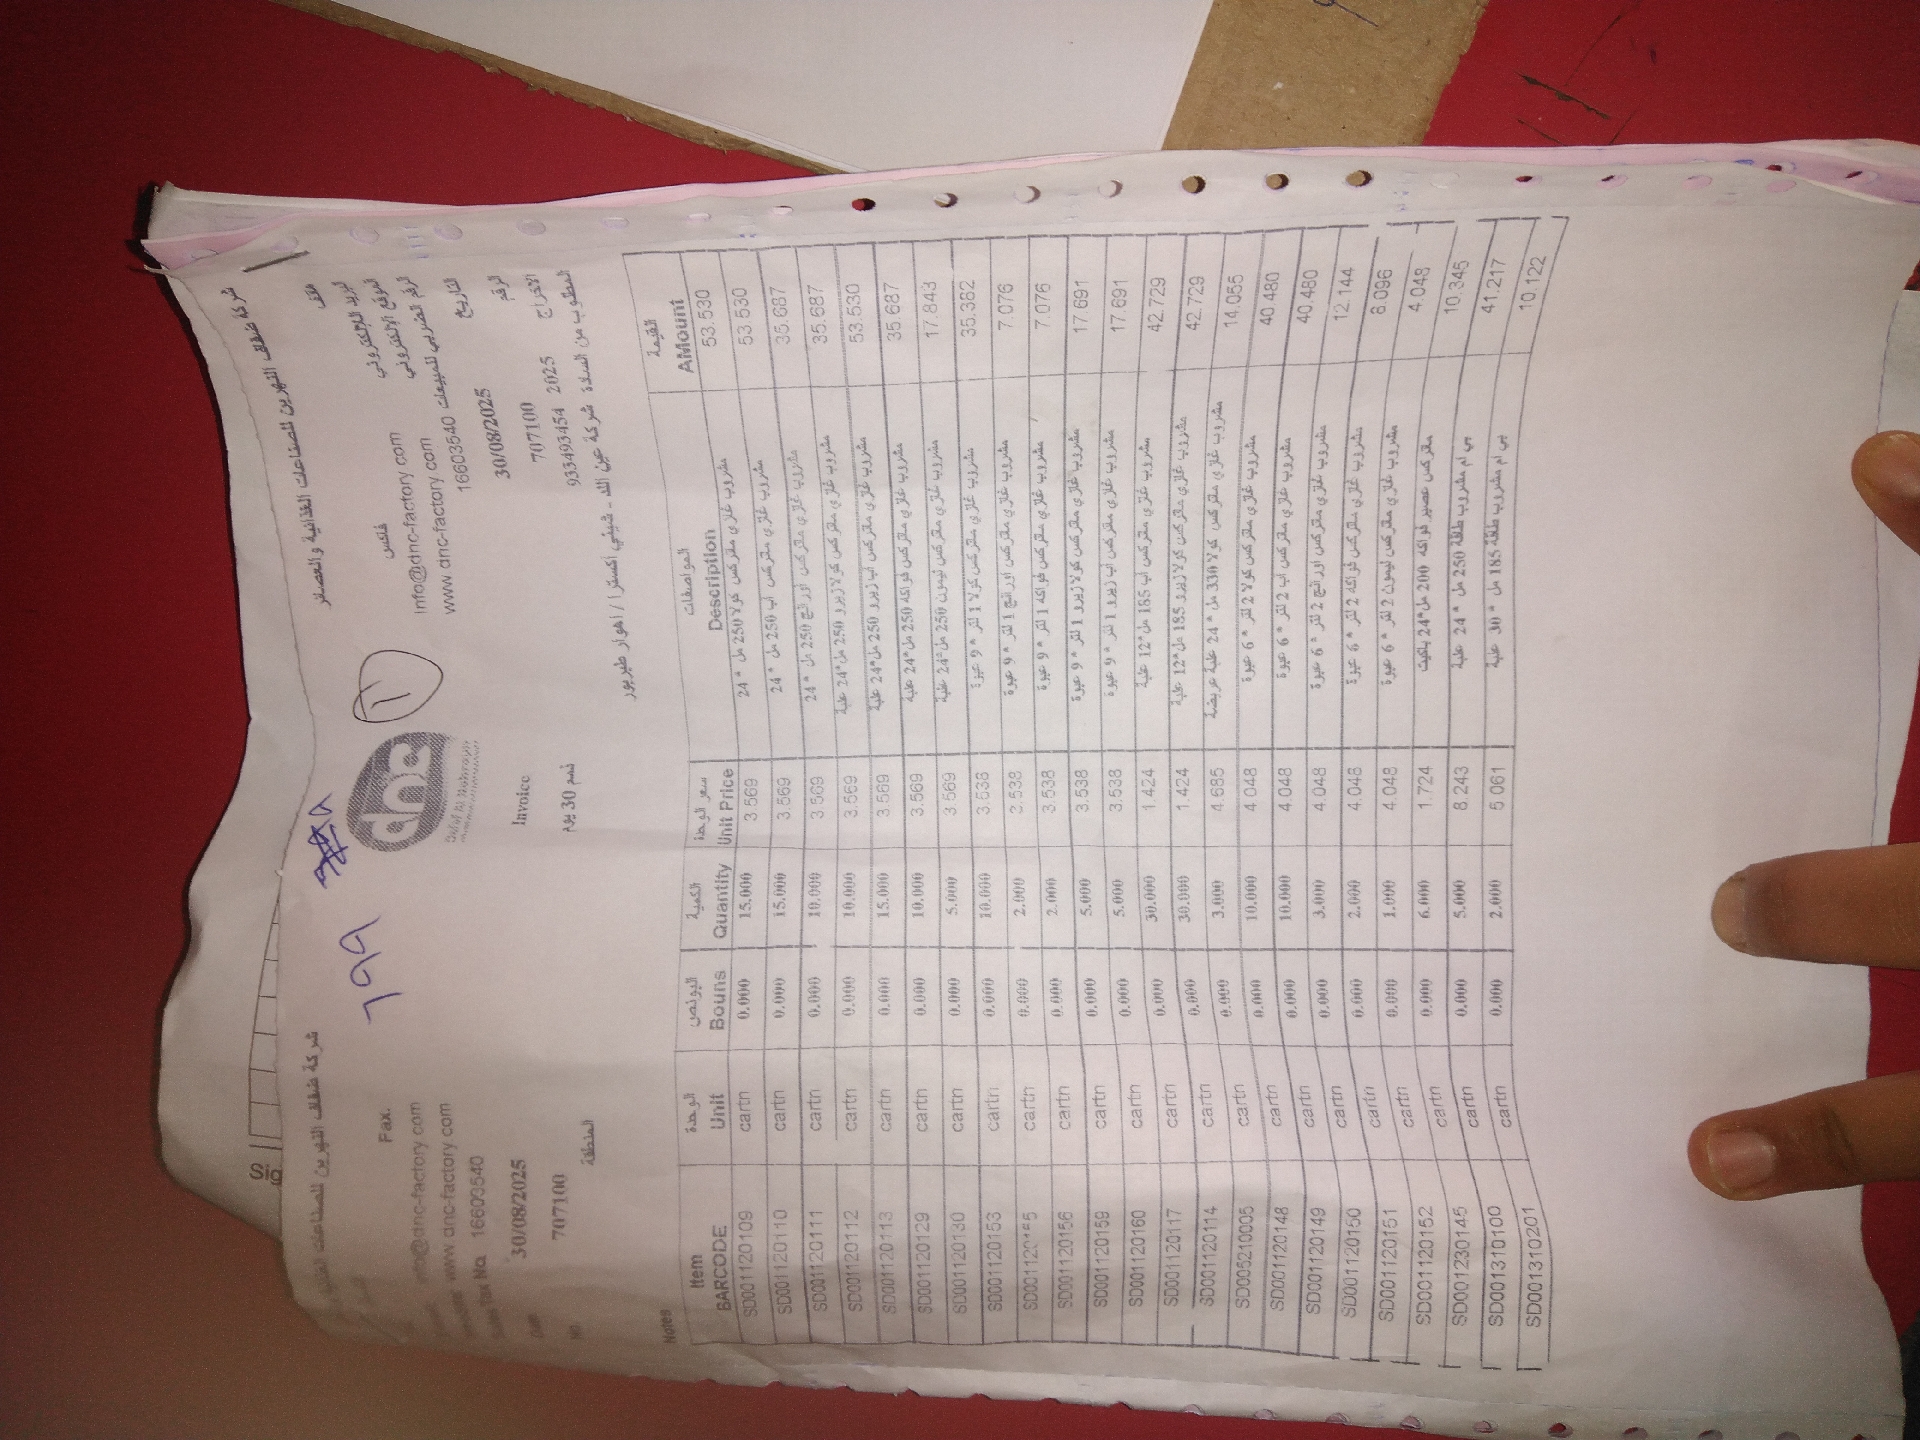 شركة ضفاف النهرين للصناعات الغذائية والعصائر
شركة ضفاف النهرين للصناعات
٦٩٩
١
dnc
Defaf Al Nahrain
هاتف
Fax.
فاكس
البريد الالكتروني
info@dnc-factory.com
info@dnc-factory.com
الموقع الالكتروني
www.dnc-factory.com
www.dnc-factory.com
الرقم الضريبي للمبيعات 16603540
Sales Tax No. 16603540
التاريخ 30/08/2025
Invoice
Date 30/08/2025
الرقم 707100
ذمم 30 يوم
No. 707100
الاخراج 2025 933493454
المنطقة
المطلوب من السادة شركة عين الله - شيني اكسترا / اهوار طبربور
Notes
Item الوحدة البونص الكمية سعر الوحدة المواصفات القيمة
BARCODE Unit Bouns Quantity Unit Price Description AMount
SD001120109 cartn 0.000 15.000 3.569 مشروب غازي متركس كولا 250 مل * 24 53.530
SD001120110 cartn 0.000 15.000 3.569 مشروب غازي متركس اب 250 مل * 24 53.530
SD001120111 cartn 0.000 10.000 3.569 مشروب غازي متركس اورانج 250 مل * 24 35.687
SD001120112 cartn 0.000 10.000 3.569 مشروب غازي متركس كولا زيرو 250 مل*24 علبة 35.687
SD001120113 cartn 0.000 15.000 3.569 مشروب غازي متركس اب زيرو 250 مل*24 علبة 53.530
SD001120129 cartn 0.000 10.000 3.569 مشروب غازي متركس فواكه 250 مل*24 علبة 35.687
SD001120130 cartn 0.000 5.000 3.569 مشروب غازي متركس ليمون 250 مل*24 علبة 17.843
SD001120153 cartn 0.000 10.000 3.538 مشروب غازي متركس كولا 1 لتر * 9 عبوة 35.382
SD001120155 cartn 0.000 2.000 3.538 مشروب غازي متركس اورانج 1 لتر * 9 عبوة 7.076
SD001120156 cartn 0.000 2.000 3.538 مشروب غازي متركس فواكه 1 لتر * 9 عبوة 7.076
SD001120159 cartn 0.000 5.000 3.538 مشروب غازي متركس كولا زيرو 1 لتر * 9 عبوة 17.691
SD001120160 cartn 0.000 5.000 3.538 مشروب غازي متركس اب زيرو 1 لتر * 9 عبوة 17.691
SD001120117 cartn 0.000 30.000 1.424 مشروب غازي متركس اب 185 مل*12 علبة 42.729
SD001120114 cartn 0.000 30.000 1.424 مشروب غازي متركس كولا زيرو 185 مل*12 علبة 42.729
SD005210005 cartn 0.000 3.000 4.685 مشروب غازي متركس كولا 330 مل * 24 علبة عريضة 14.055
SD001120148 cartn 0.000 10.000 4.048 مشروب غازي متركس كولا 2 لتر * 6 عبوة 40.480
SD001120149 cartn 0.000 10.000 4.048 مشروب غازي متركس اب 2 لتر * 6 عبوة 40.480
SD001120150 cartn 0.000 3.000 4.048 مشروب غازي متركس اورانج 2 لتر * 6 عبوة 12.144
SD001120151 cartn 0.000 2.000 4.048 مشروب غازي متركس فواكه 2 لتر * 6 عبوة 8.096
SD001120152 cartn 0.000 1.000 4.048 مشروب غازي متركس ليمون 2 لتر * 6 عبوة 4.048
SD001230145 cartn 0.000 6.000 1.724 متركس عصير فواكه 200 مل*24 باكيت 10.345
SD001310100 cartn 0.000 5.000 8.243 بي ام مشروب طاقة 250 مل * 24 علبة 41.217
SD001310201 cartn 0.000 2.000 5.061 بي ام مشروب طاقة 185 مل * 30 علبة 10.122